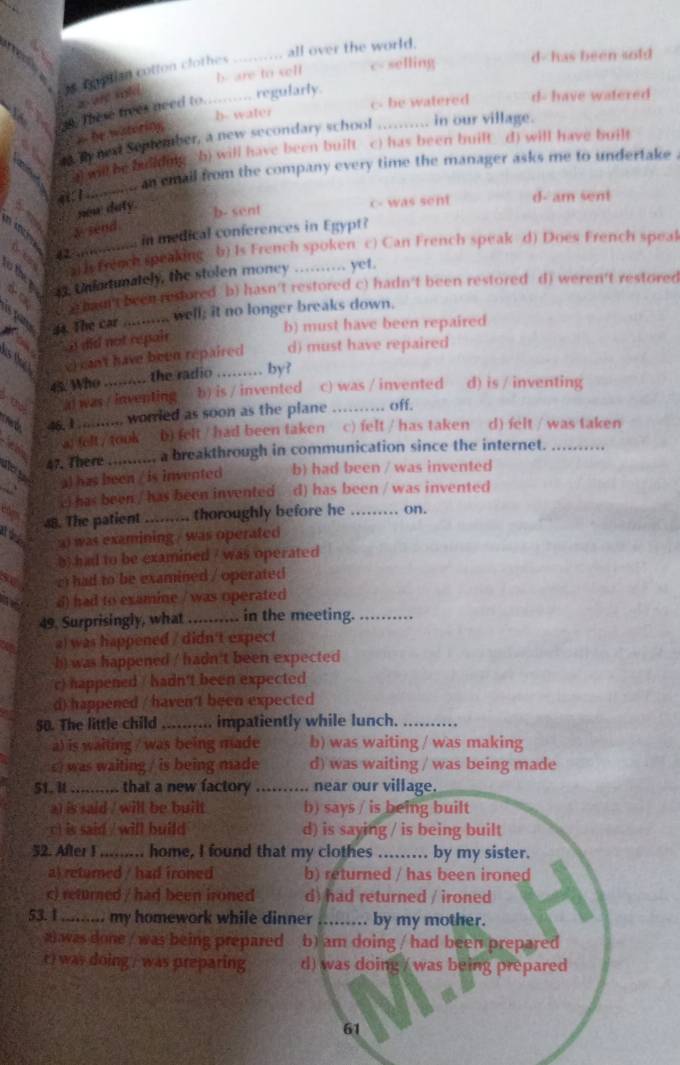 Egyptian cotton clothes .......... all over the world.
a- are sold b- are to sell c- selling d- has been sold
39. These trees need to.......... regularly.
a- be watering b- water c- be watered d- have watered
40. By next September, a new secondary school .......... in our village.
a) will be building b) will have been built c) has been built d) will have built
41. I .......... an email from the company every time the manager asks me to undertake a
new duty.
a- send b- sent c- was sent d- am sent
42. .......... in medical conferences in Egypt?
a) Is French speaking b) Is French spoken c) Can French speak d) Does French speak
43. Unfortunately, the stolen money .......... yet.
a) hasn't been restored b) hasn't restored c) hadn't been restored d) weren't restored
44. The car .......... well; it no longer breaks down.
a) did not repair b) must have been repaired
c) can't have been repaired d) must have repaired
45. Who ......... the radio ......... by?
a) was / inventing b) is / invented c) was / invented d) is / inventing
46. I ......... worried as soon as the plane .......... off.
a) felt / took b) felt / had been taken c) felt / has taken d) felt / was taken
47. There .......... a breakthrough in communication since the internet. ..........
a) has been / is invented b) had been / was invented
c) has been / has been invented d) has been / was invented
48. The patient ......... thoroughly before he ......... on.
a) was examining / was operated
b) had to be examined / was operated
c) had to be examined / operated
d) had to examine / was operated
49. Surprisingly, what .......... in the meeting. ..........
a) was happened / didn't expect
b) was happened / hadn't been expected
c) happened / hadn't been expected
d) happened / haven't been expected
50. The little child .......... impatiently while lunch. ..........
a) is waiting / was being made b) was waiting / was making
c) was waiting / is being made d) was waiting / was being made
51. It ......... that a new factory .......... near our village.
a) is said / will be built b) says / is being built
c) is said / will build d) is saying / is being built
52. After I ......... home, I found that my clothes ......... by my sister.
a) returned / had ironed b) returned / has been ironed
c) returned / had been ironed d) had returned / ironed
53. I ......... my homework while dinner ......... by my mother.
a) was done / was being prepared b) am doing / had been prepared
c) was doing / was preparing d) was doing / was being prepared
M.A.H
61